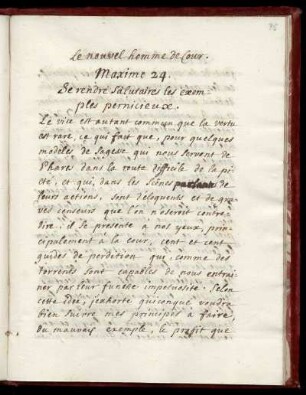 Le nouvel homme de Cour.
Maxime 24.
Se rendre salutaires les exem-
ples pernicieux.
Le vice est autant commun que la vertu
est rare, ce qui fait que, pour quelques
modeles de sagesse qui nous servent de
Phare dans la route difficile de la pi-
eté, et qui, dans les scenes de
leurs actions, sont deloquents et de gra-
ves censeurs que l'on n'oseroit contre-
dire; il se presente a nos yeux, prin-
cipalement a la cour, cent et cent
guides de perdition qui, comme des
torrents sont capables de nous entrai-
ner par leur funeste impetuosité. Selon
cette idée, j'exhorte quiconque voudra
bien suivre mes principes a faire,
du mauvais exemple, le profit que